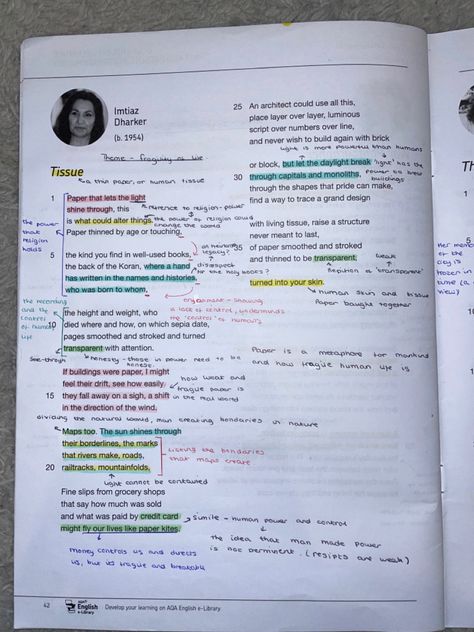 Imtiaz
Dharker
(b. 1954)
Theme - fragility of life
Tissue
a thin paper, or human tissue
1 Paper that lets the light
shine through, this
reference to religion - power
is what could alter things.
the power of religion could
change the world
Paper thinned by age or touching,
the power
that
religion
holds
an enduring
legacy?
5 the kind you find in well-used books,
the back of the Koran, where a hand
disrespect
for the holy books?
has written in the names and histories,
who was born to whom,
enjambment - showing
a lack of control, undermines
the 'control' of humans
the recording
and the
control
of human
life
the height and weight, who
10 died where and how, on which sepia date,
pages smoothed and stroked and turned
transparent with attention.
see-through
honesty - those in power need to be
honest.
If buildings were paper, I might
feel their drift, see how easily
15 they fall away on a sigh, a shift
in the direction of the wind.
how weak and
fragile paper is
in the real world
dividing the natural world, man creating bondaries in nature
Maps too. The sun shines through
their borderlines, the marks
that rivers make, roads,
20 railtracks, mountainfolds,
Listing the bondaries
that maps create
light cannot be contained
Fine slips from grocery shops
that say how much was sold
and what was paid by credit card
might fly our lives like paper kites.
Simile - human power and control
the idea that man made power
is not perminent. (recipts are weak)
money controls us and directs
us, but its fragile and breakable
25 An architect could use all this,
place layer over layer, luminous
script over numbers over line,
and never wish to build again with brick
light is more powerful than humans
or block, but let the daylight break
'light' has the
power to brea
buildings
30 through capitals and monoliths,
through the shapes that pride can make,
find a way to trace a grand design
with living tissue, raise a structure
never meant to last,
35 of paper smoothed and stroked
and thinned to be transparent,
weak
Repition of transparent
turned into your skin.
human skin and tissue
Paper bought together
Paper is a metaphor for mankind
and how fragile human life is
42
AQA
English
e-Library
Develop your learning on AQA English e-Library
Th
5
Her
of the
city is
frozen in
time (a
view)
10